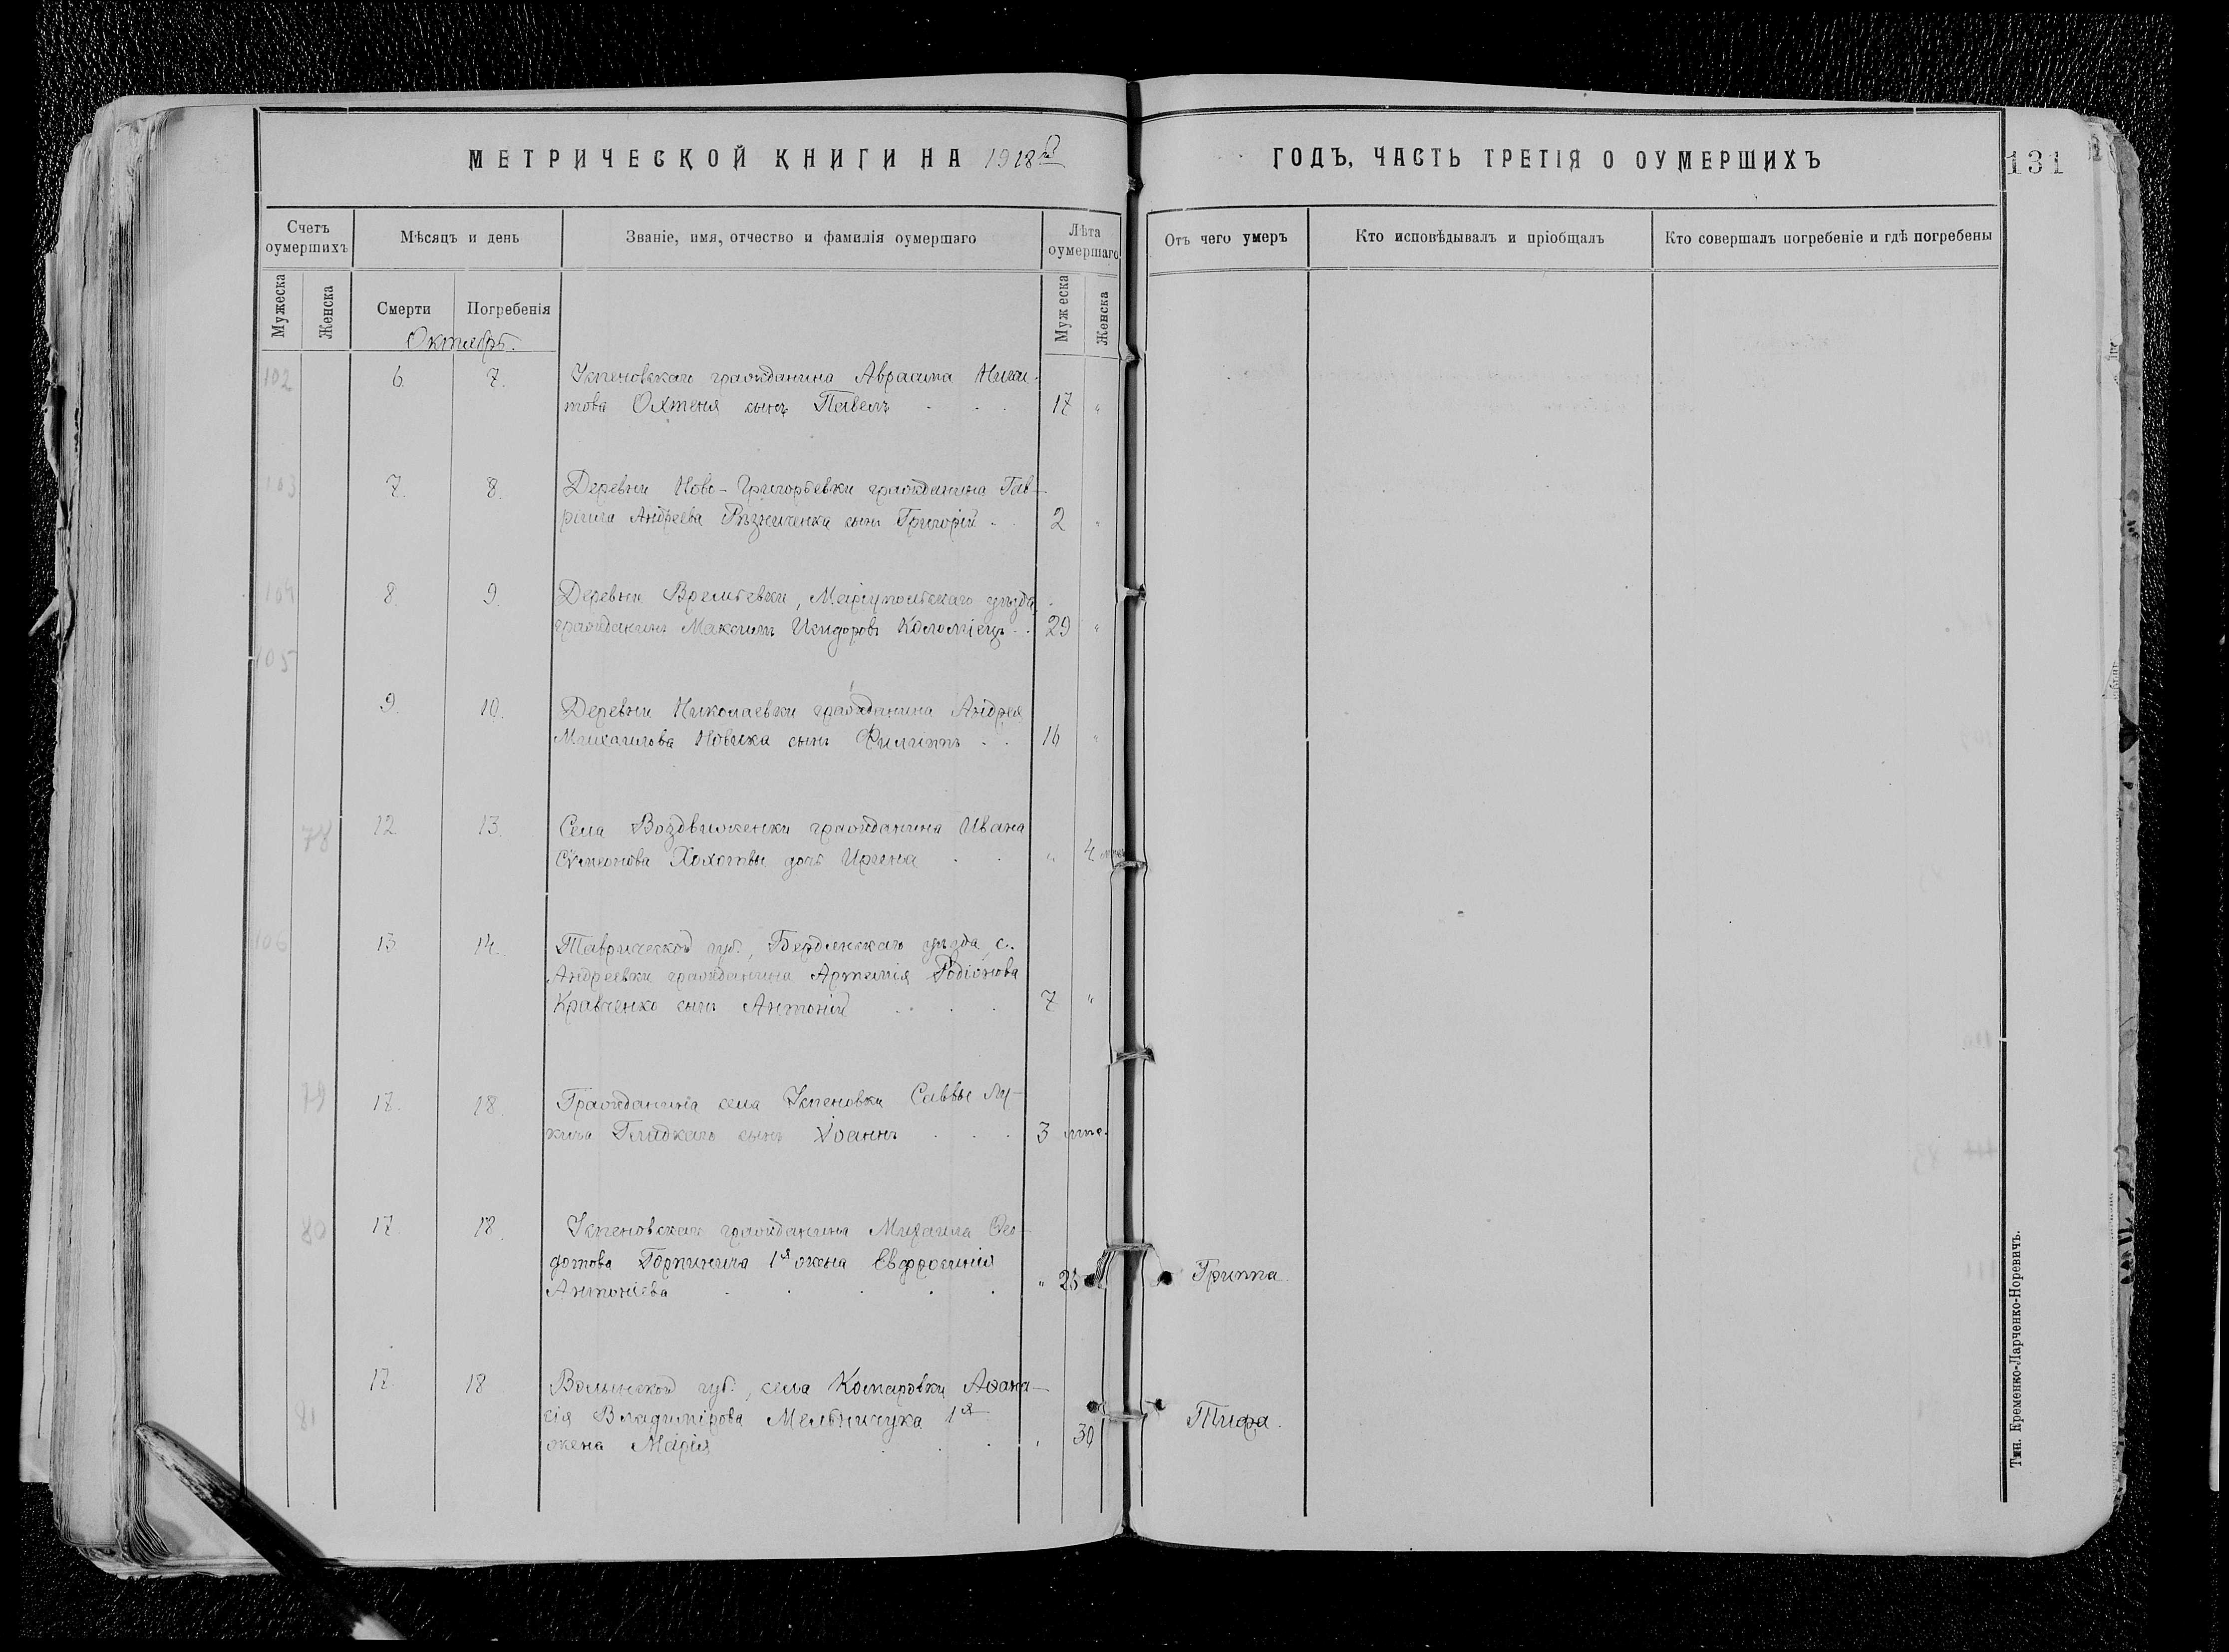 МЕТРИЧЕСКОЙ КНИГИ НА 1918й
ГОДЪ, ЧАСТЬ ТРЕТІЯ О ОУМЕРШИХЪ
131
Счетъ оумершихъ
Мѣсяцъ и день
Званіе, имя, отчество и фамилія оумершаго
Лѣта оумершаго
Отъ чего умеръ
Кто исповѣдывалъ и пріобщалъ
Кто совершалъ погребеніе и гдѣ погребены
Мужеска
Женска
Смерти
Погребенія
Мужеска
Женска
Октябрь.
102 6. 7. Успеновскаго гражданина Авраама Ники-
това Охтеня сынъ Павелъ 17 „
103 7. 8. Деревни Ново-Григорьевки гражданина Гав-
ріила Андреева Рѣзниченка сынъ Григорій 2 „
104 8. 9. Деревни Времьевки, Маріупольскаго уѣзда
гражданинъ Максимъ Исидоровъ Коломіецъ 29 „
105
9. 10. Деревни Николаевки гражданина Андрея
Михаилова Новика сынъ Филиппъ 16 „
78 12. 13. Села Воздвиженки гражданина Ивана
Сѵмеонова дочь Ирина „ 4 мѣс
106 13 14. Таврической губ., Бердянскаго уѣзда, с.
Андреевки гражданина Артемія Родіонова
Кравченко сынъ Антоній 7 „
79 17. 18. Гражданина села Успеновки Саввы Лу-
кича Гладкаго сынъ Іоаннъ 3 мѣс.
80 17 18. Успеновскаго гражданина Михаила Ѳео-
дотова 1я жена Евфросинія
Антоніева „ Гриппа.
81 17. 18 Волынской губ., села Комаровки Аѳана-
сія Владимірова Мельничука 1я
жена Марія „ 30 Тифа.
Тип. Еременко-Ларченко-Норевичъ.